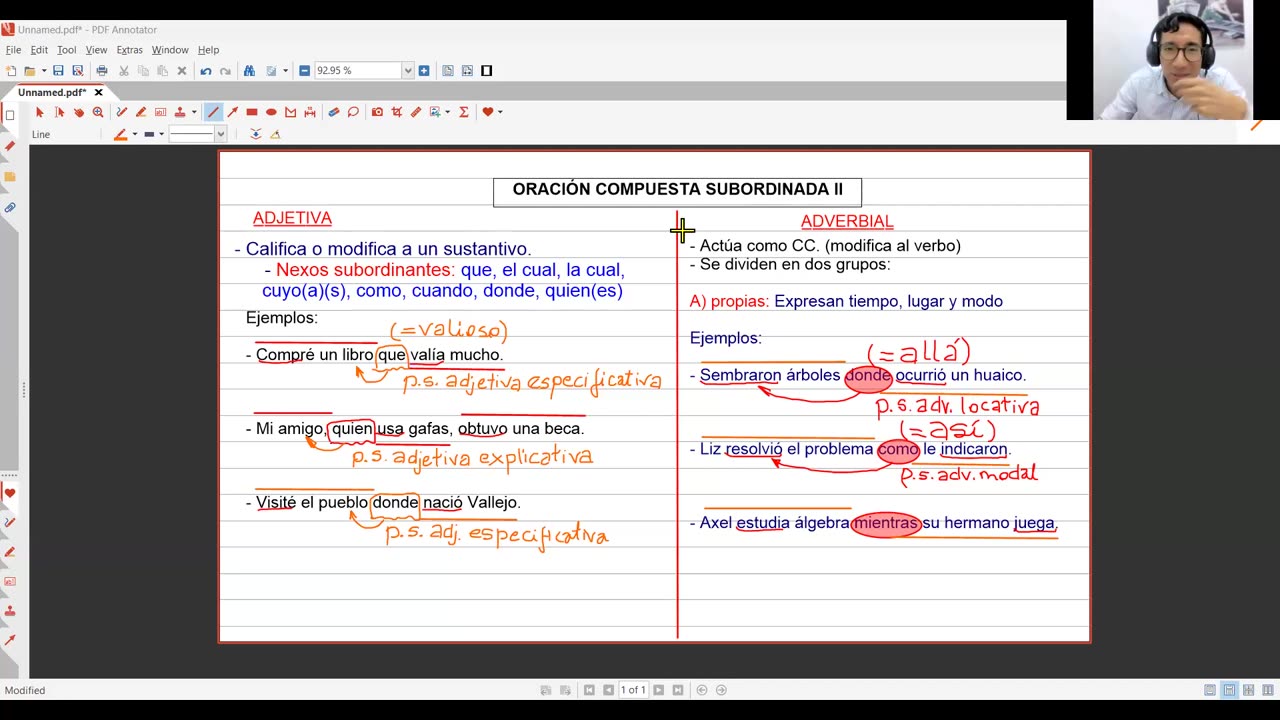 Unnamed.pdf* - PDF Annotator
File Edit Tool View Extras Window Help
92.95 %
Unnamed.pdf*
Line
ORACIÓN COMPUESTA SUBORDINADA II
ADJETIVA
- Califica o modifica a un sustantivo.
- Nexos subordinantes: que, el cual, la cual,
cuyo(a)(s), como, cuando, donde, quien(es)
Ejemplos:
(=valioso)
- Compré un libro que valía mucho.
p.s. adjetiva especificativa
- Mi amigo, quien usa gafas, obtuvo una beca.
p.s. adjetiva explicativa
- Visité el pueblo donde nació Vallejo.
p.s. adj. especificativa
ADVERBIAL
- Actúa como CC. (modifica al verbo)
- Se dividen en dos grupos:
A) propias: Expresan tiempo, lugar y modo
Ejemplos:
(=allá)
- Sembraron árboles donde ocurrió un huaico.
p.s. adv. locativa
(=así)
- Liz resolvió el problema como le indicaron.
p.s. adv. modal
- Axel estudia álgebra mientras su hermano juega.
Modified
1 of 1